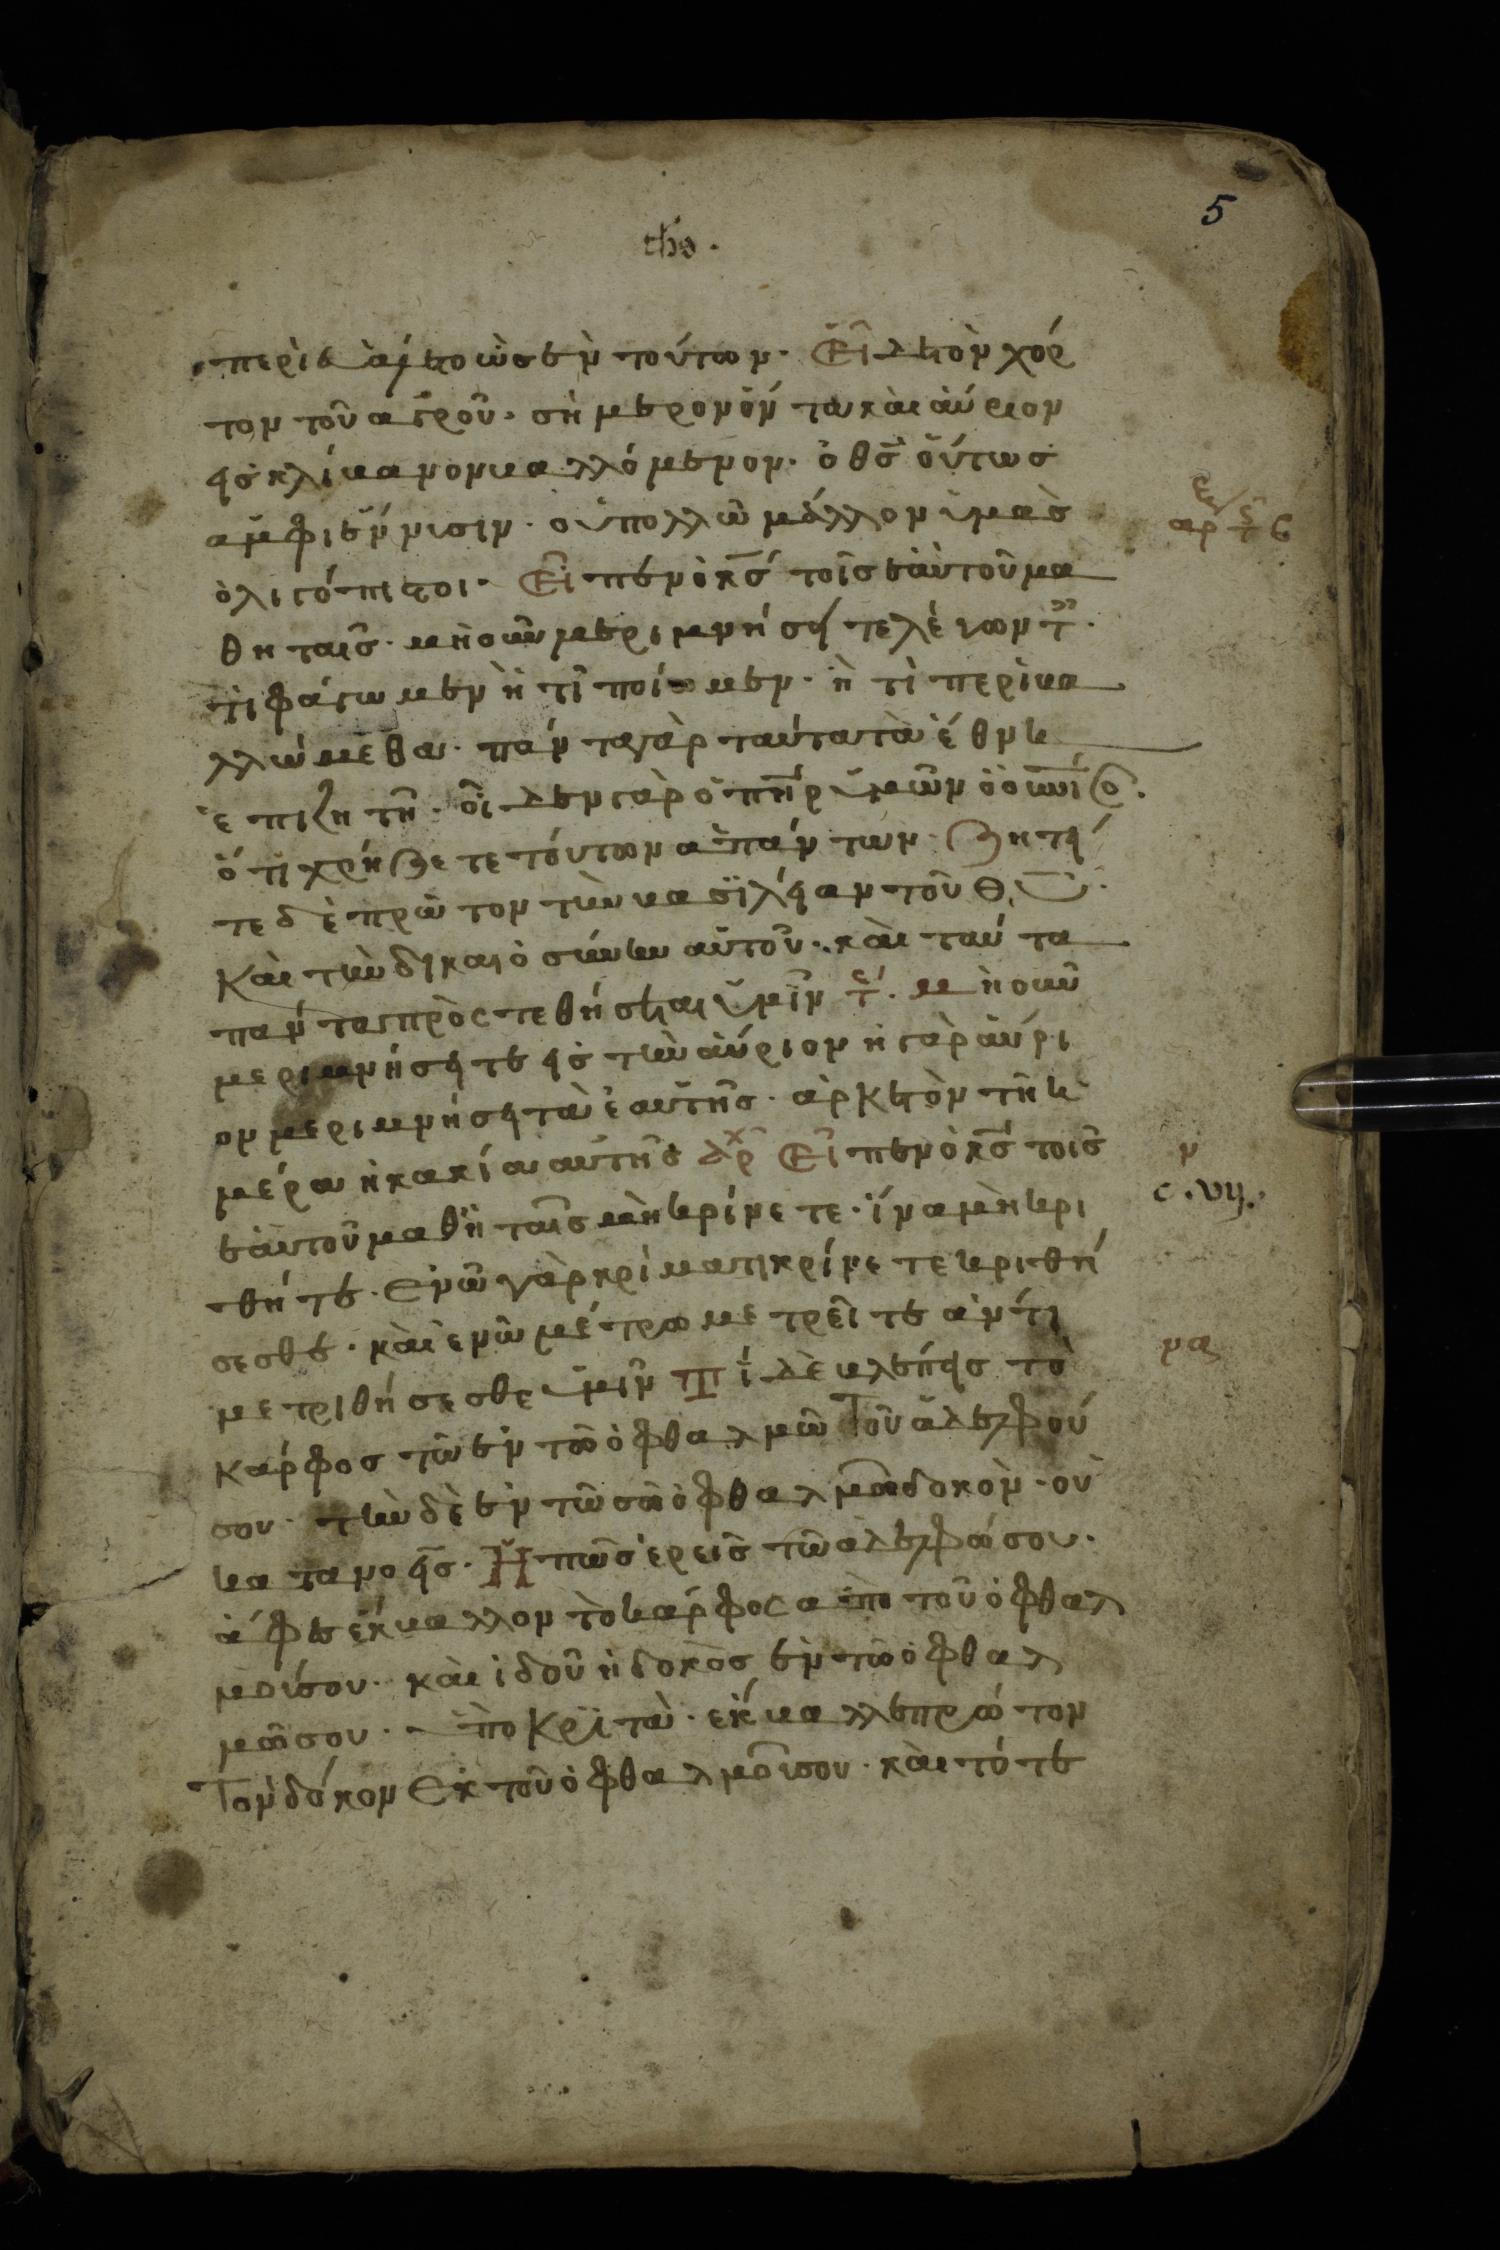 5
ths.
περιεβάλετο ὡς ἓν τούτων. Εἰ δὲ τὸν χόρ
τον τοῦ αγροῦ. σήμερον ὄντα καὶ αύριον
εἰς κλίβανον βαλλόμενον. ὁ θς οὕτως
αμφιέννυσιν. οὐ πολλῶ μάλλον ὑμας
ὀλιγόπιστοι. Εἶπεν ὁ κς τοῖς ἑαυτοῦ μα
θηταις. μὴ οὖν μεριμνήσητε λέγοντ
τί φάγωμεν ἢ τί ποίωμεν. ἢ τί περιβα
λλώμεθα. πάντα γὰρ ταύτα τὰ έθνη
ἐπιζητῆ. οἶδεν γὰρ ὁ πηρ ὑμῶν ὁ οὐνιο
ὅτι χρήζετε τούτων απάντων. Ζητεί
τε δὲ πρῶτον τὴν βασιλείαν τοῦ Θυ.
Καὶ τὴν δικαιοσύνην αὐτοῦ. καὶ ταύτα
πάντα προςτεθήσεται ὑμῖν τε. μὴ οὖν
μεριμνήσητε εἰς τὴν αύριον ἡ γὰρ αύρι
ον μεριμνήσει τὰ ἑαυτῆς. ἀρκετὸν τῆ ἡ
μέρα ἡ κακία αὐτῆς αρχ Εἶπεν ὁ κς τοις
ἑαυτοῦ μαθηταῖς μὴ κρίνετε. ἵνα μὴ κρι
θήτε. Εν ῶ γὰρ κρίματι κρίνετε κριθή
σεσθε. καὶ εν ῶ μέτρω μετρεῖτε ἀντι
μετριθήσεσθε ὑμῖν Τί δὲ βλέπεις τὸ
κάρφος τῶ ἐν τῶ ὀφθαλμῶ Τοῦ ἀδελφού
σου. τὴν δὲ ἐν τῶ σῶ ὀφθαλμῶ δοκὸν. οὐ
κατανοεῖς. Ἢ πῶς ἐρεῖς τῶ ἀδελφώ σου.
ἄφες ἐκβαλλον τὸ κάρφος απὸ τοῦ ὀφθαλ
μού σου. καὶ ἰδοῦ ἡ δοκὸς ἐν τῶ ὀφθαλ
μῶ σου. ὑποκριτὰ. εκβαλλε πρώτον
Τὸν δόκον Εκ τοῦ ὀφθαλμοῦ σου. καὶ τότε
ν
c. vij.
να